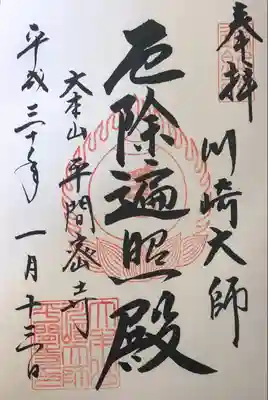 奉拝
川崎大師
厄除遍照殿
大本山 平間密寺
平成三十年一月十三日